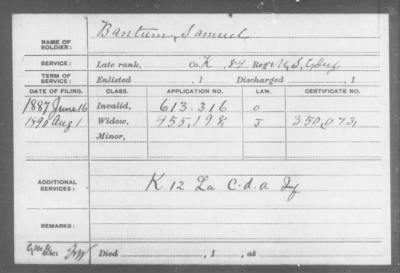 NAME OF SOLDIER: Bantum, Samuel
SERVICE: Late rank, Co. K, 84 Reg't U.S.C. Inf
TERM OF SERVICE: Enlisted , 1 Discharged , 1
DATE OF FILING. CLASS. APPLICATION NO. LAW. CERTIFICATE NO.
1887 June 16 Invalid, 613.316
1890 Aug 1 Widow, 455,198, J 350,073,
Minor,
ADDITIONAL SERVICES: K 12 La C.d.a Inf
REMARKS:
Died , 1 , at